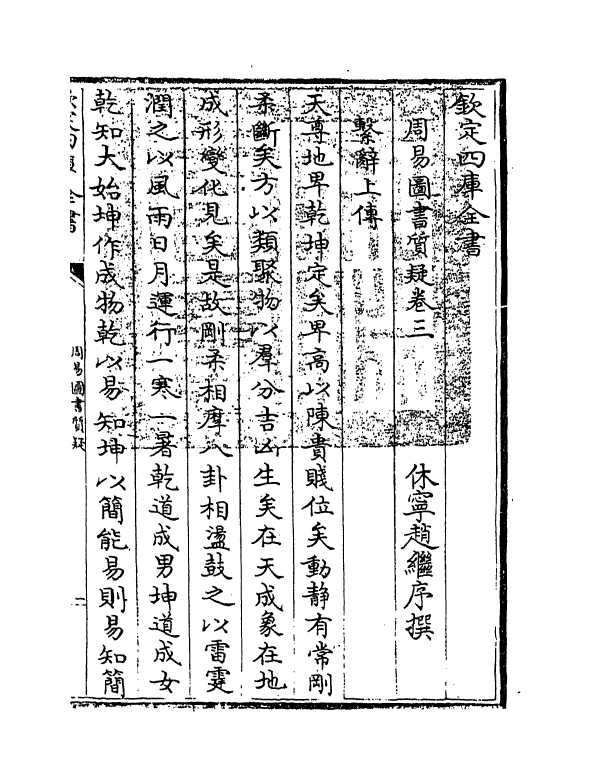 欽定四庫全書
周易圖書質疑卷三
休寧趙繼序撰
繫辭上傳
天尊地卑乾坤定矣卑高以陳貴賤位矣動静有常剛
柔斷矣方以類聚物以羣分吉凶生矣在天成象在地
成形變化見矣是故剛柔相摩八卦相盪鼓之以雷霆
潤之以風雨日月運行一寒一暑乾道成男坤道成女
乾知大始坤作成物乾以易知坤以簡能易則易知簡
欽定四庫全書
周易圖書質疑